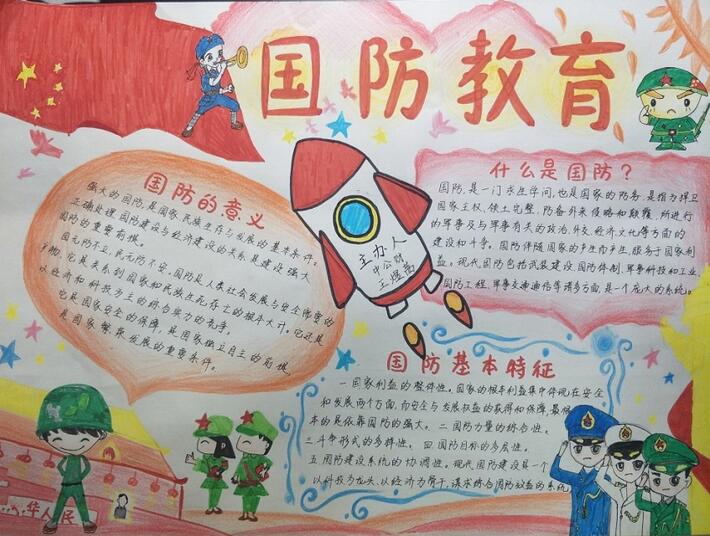 国防教育
国防的意义
强大的国防,是国家、民族生存与发展的基本条件。
正确处理国防建设与经济建设的关系是建设强大
国防的重要前提。
国无防不立,民无防不安,国防是人类社会发展与安全需要的
产物,它是关系到国家和民族生死存亡的根本大计。它还是
以经济和科技为主的综合实力的竞争。
它是国家安全的保障,是国家独立自主的前提
是国家繁荣发展的重要条件。
主办人
王煜
什么是国防?
国防,是一门求生学问,也是国家的防务,是指为捍卫
国家主权、领土完整,防备外来侵略和颠覆,所进行
的军事及与军事有关的政治、外交、经济文化等方面的
建设和斗争。国防伴随国家的产生而产生,服务于国家利
益。现代国防包括武装建设,国防体制,军事科技和工业,
国防工程,军事交通通信等诸多方面,是一个庞大的系统。
国防基本特征
一国家利益的整体性。国家的根本利益集中体现在安全
和发展两个方面,而安全与发展权益的获得和保障,最根
本的是依靠国防的强大。二国防力量的综合性。
三斗争形式的多样性。四国防目标的多层性。
五国防建设系统的协调性。现代国防建设是一个
以科技为龙头,以经济为骨干,谋求综合国防效益的系统
华人民